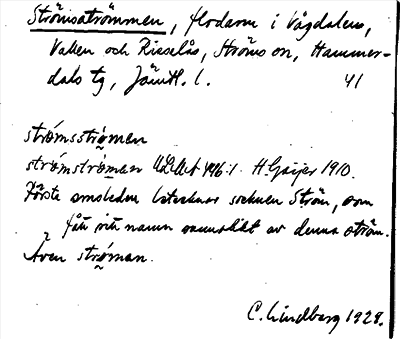 Strömsströmmen, flodarm i Vågdalen,
Vallen och Risselås, Ströms sn, Hammer-
dals tg, Jämtl. l. 41
strömsströmen
strömströmen ULLA 446:1. H. Geijer 1910.
Förste smsleden betecknar socknen Ström, som
fått sitt namn sannolikt av denna ström.
Även strömen.
C. Lindberg 1928.